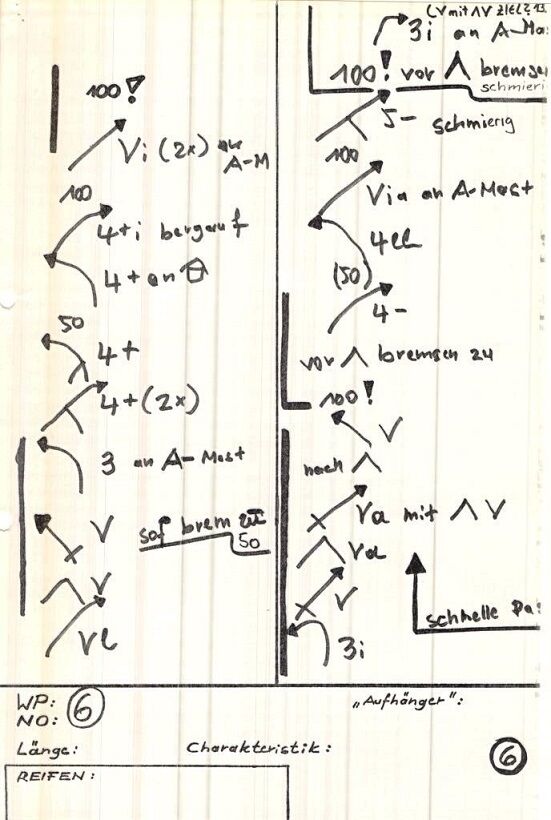 100!
Vi (2x) an
A-M
100
4+i bergauf
4+ an
50
4+
4+(2x)
3 an A-Mast
V
sof brem zu
50
V
Vl
(V mit Λ V ZIEL
3i an A-Ma
100! vor Λ bremsen
schmieri
5- schmierig
100
Via an A-Mast
4ll
(50)
4-
vor Λ bremsen zu
100!
V
nach Λ
Va mit Λ V
Va
V
schnelle Pa
3i
WP:
NO: 6
"Aufhänger":
Länge:
Charakteristik:
6
REIFEN: